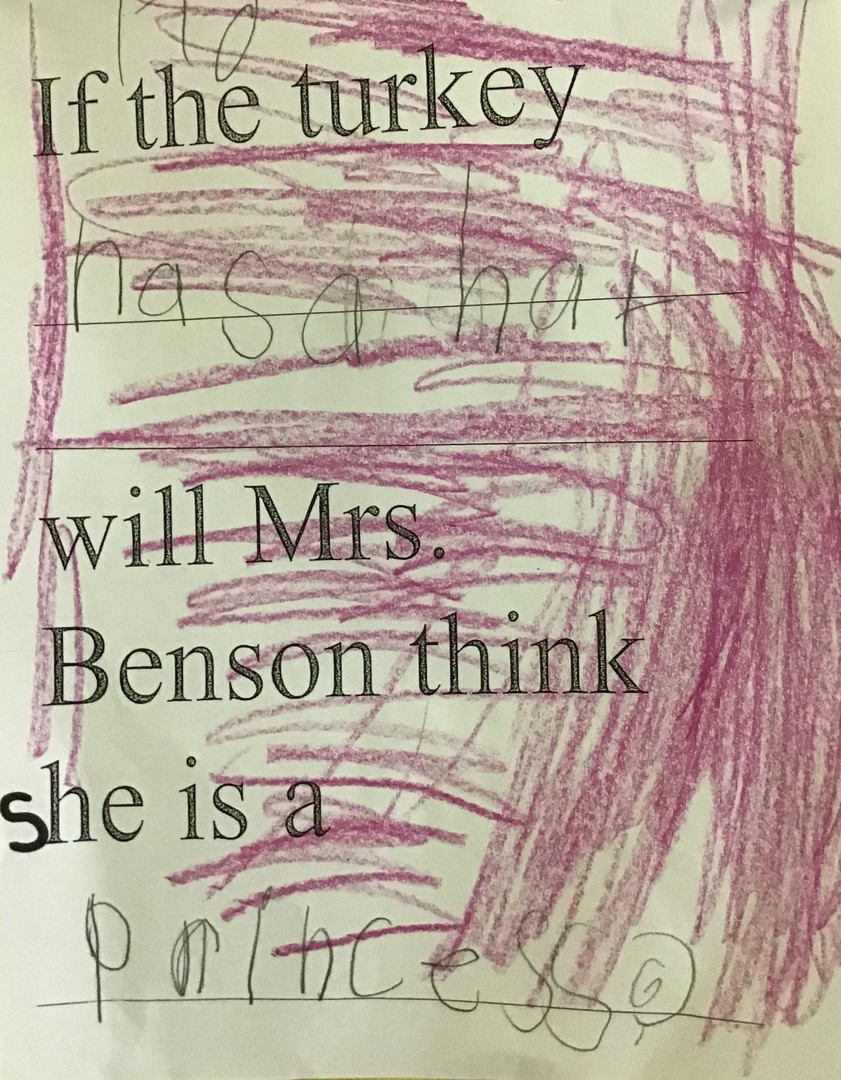 If the turkey
has a hat
will Mrs.
Benson think
she is a
princess?